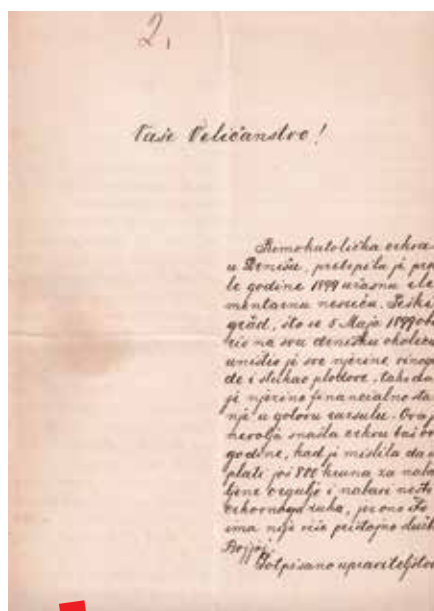 2,
Vaše Veličanstvo!
Rimokatolička crkva
u Drnišu, pretrpila je pro
le godine 1899 užasnu ele
mentarnu nesreću. Teški
grad, što se 5 Maja 1899 obo
rio na svu drnišku okolicu
uništio je sve njezine vinogra
de i stukao plodove, tako da
je njezino financialno sta
nje u gotovu rasulu. Ova
nevolja snašla crkvu baš
godine, kad je mislila da
plati još 800 kruna za naba
ljene orgulje i nabavi nešto
crkvenoga ruha, jer ono što
ima nije više pristojno služb
Božjoj.
Potpisano upraviteljstvo